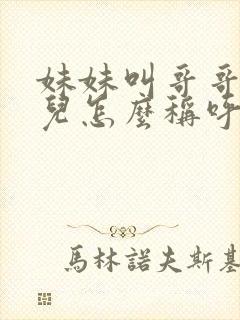 妹妹叫哥哥
兒怎麼稱呼
馬林諾夫斯基